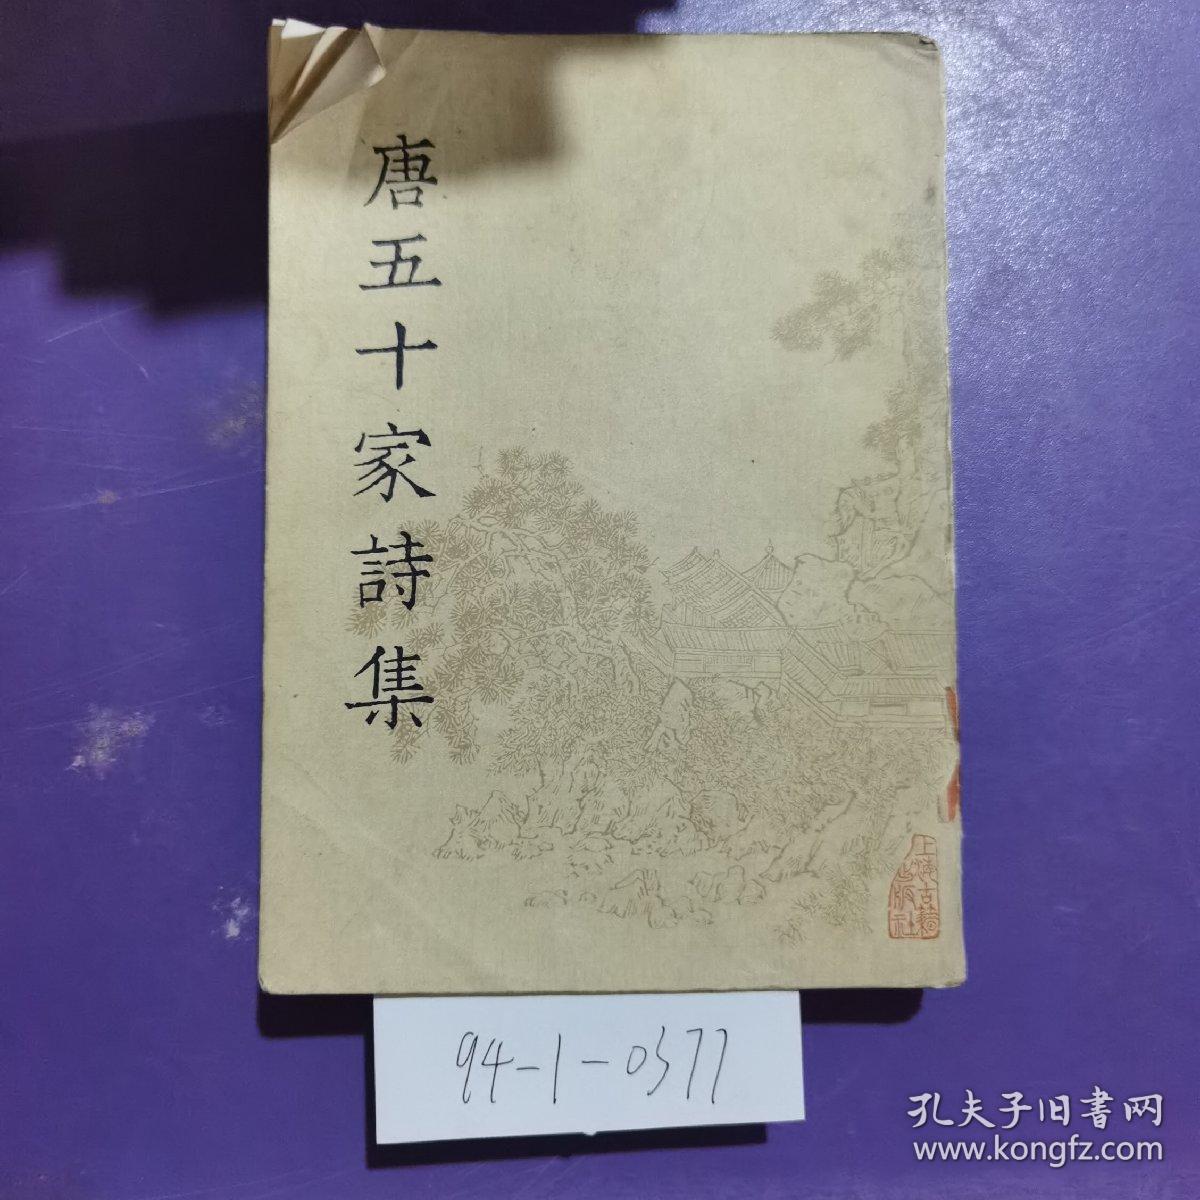 唐五十家詩集
上海古籍
出版社
94-1-0377
孔夫子旧书网
www.kongfz.com